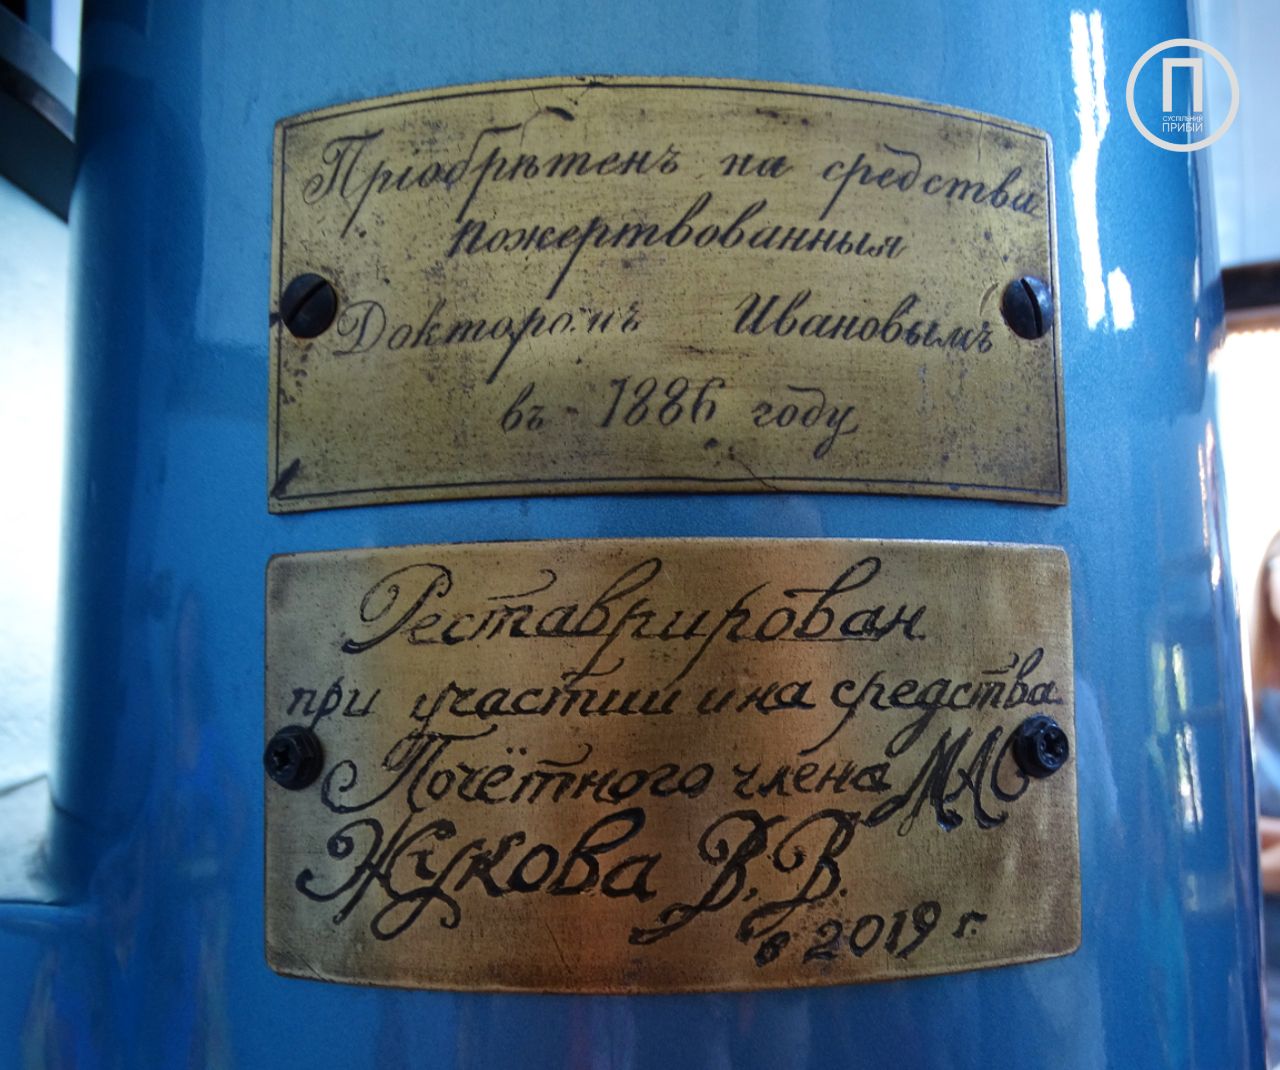 П
СУСПІЛЬНИЙ
ПРИБІЙ
Пріобрѣтенъ на средства
пожертвованныя
Докторомъ Ивановымъ
въ 1886 году
Реставрирован
при участии и на средства
Почётного члена МАС
Жукова В.В.
в 2019 г.